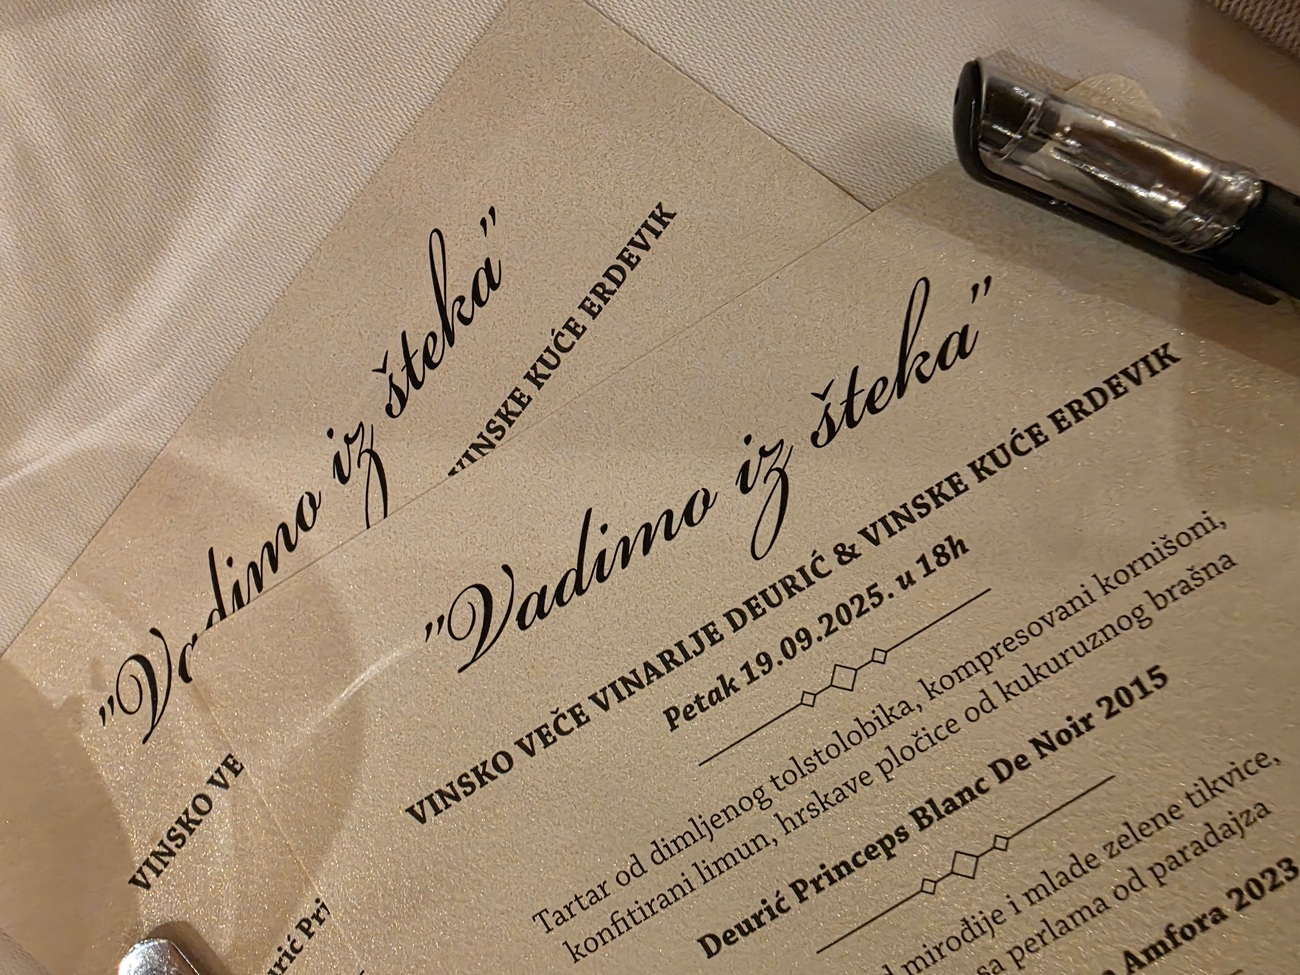 "Vadimo iz šteka"
VINSKE KUĆE ERDEVIK
VINSKO VE
"Vadimo iz šteka"
VINSKO VEČE VINARIJE DEURIĆ & VINSKE KUĆE ERDEVIK
Petak 19.09.2025. u 18h
Tartar od dimljenog tolstolobika, kompresovani kornišoni,
konfitirani limun, hrskave pločice od kukuruznog brašna
Deurić Princeps Blanc De Noir 2015
mirođije i mlade zelene tikvice,
sa perlama od paradajza
Amfora 2023